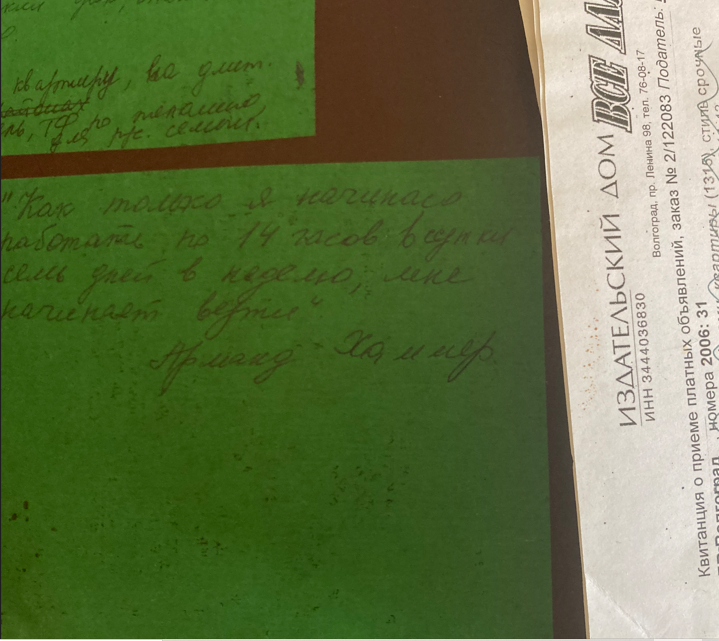 квартиру, на длит.
для рус. семьи.
"Как только я начинаю
работать по 14 часов в сутки
семь дней в неделю, мне
начинает везти"
Арманд Хаммер
ИЗДАТЕЛЬСКИЙ ДОМ ВСЕ ДЛЯ
Волгоград, пр. Ленина 98, тел. 76-08-17
ИНН 3444036830
Квитанция о приеме платных объявлений, заказ № 2/122083 Податель:
номера 2006: 31 квартиры (1315), стиль срочные